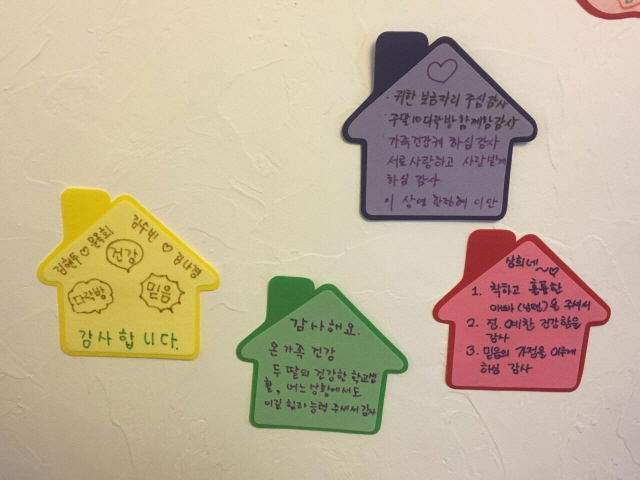 귀한 보금자리 주심 감사
구달 10 다락방 함께함 감사
가족건강케 하심 감사
서로 사랑하고 사랑받게
하심 감사
김현두 ♡ 문옥희
김수빈 ♡ 김나경
건강
다락방
믿음
감사합니다.
감사해요.
온 가족 건강
두 딸의 건강한 학교생
활, 어느 상황에서도
이길 힘과 능력 주셔서 감사
상희네~♡
1. 착하고 훌륭한
아빠(남편)을 주셔서
2. 정. 예한 건강함을
감사
3. 믿음의 가정을 이루게
하심 감사